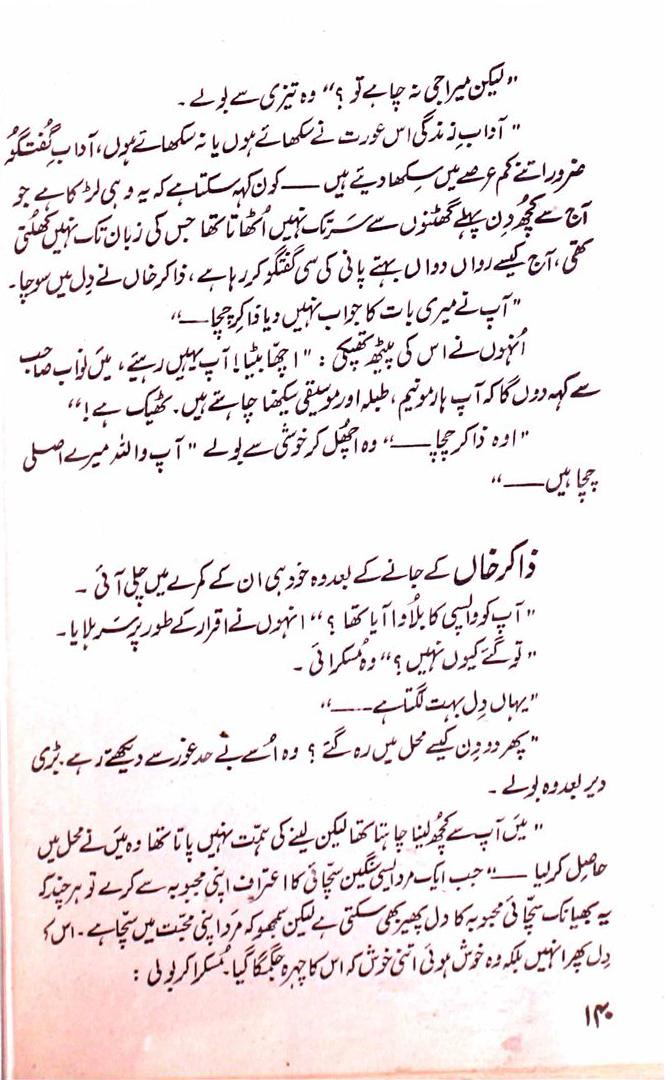 "لیکن میرا جی نہ چاہے تو؟" وہ تیزی سے بولے۔
"آدابِ زندگی اس عورت نے سکھائے ہوں یا نہ سکھائے ہوں، آدابِ گفتگو
ضرور اتنے کم عرصے میں سِکھا دیئے ہیں —— کون کہہ سکتا ہے کہ یہ وہی لڑکا ہے جو
آج سے کچھ دِن پہلے گھٹنوں سے سَر تک نہیں اُٹھاتا تھا جس کی زبان تک نہیں کھُلتی
تھی، آج کیسے رواں دواں بہتے پانی کی سی گفتگو کر رہا ہے، ذاکر خاں نے دِل میں سوچا۔
"آپ نے میری بات کا جواب نہیں دیا ذاکر چچا ——"
اُنہوں نے اس کی پیٹھ تھپکی: "اچھا بیٹا! آپ یہیں رہیئے، میں نواب صاحب
سے کہہ دوں گا کہ آپ ہارمونیم، طبلہ اور موسیقی سیکھنا چاہتے ہیں۔ ٹھیک ہے!"
"اوہ ذاکر چچا ——" وہ اچھل کر خوشی سے بولے "آپ واللہ میرے اصلی
چچا ہیں ——"
ذاکر خاں کے جانے کے بعد وہ خود ہی ان کے کمرے میں چلی آئی۔
"آپ کو واپسی کا بلُاوا آیا تھا؟" انہوں نے اقرار کے طور پر سَر ہلایا۔
"تو گئے کیوں نہیں؟" وہ مُسکرائی۔
"یہاں دِل بہت لگتا ہے ——"
"پھر دو دِن کیسے محل میں رہ گئے؟ وہ اُسے بے حد غور سے دیکھتے رہے۔ بڑی
دیر بعد وہ بولے۔
"میں آپ سے کچھ لینا چاہتا تھا لیکن لینے کی ہمّت نہیں پاتا تھا وہ میں نے محل میں
حاصِل کر لیا ——" جب ایک مرد ایسی سنگین سچّائی کا اعتراف اپنی محبوبہ سے کرے تو ہر چند کہ
یہ بھیانک سچّائی محبوبہ کا دل پھیر بھی سکتی ہے لیکن سمجھو کہ مَرد اپنی محبّت میں سچّا ہے۔ اس کا
دِل پھرا نہیں بلکہ وہ خوش ہوئی اتنی خوش کہ اس کا چہرہ جگمگا گیا۔ مُسکرا کر بولی:
۱۴۰